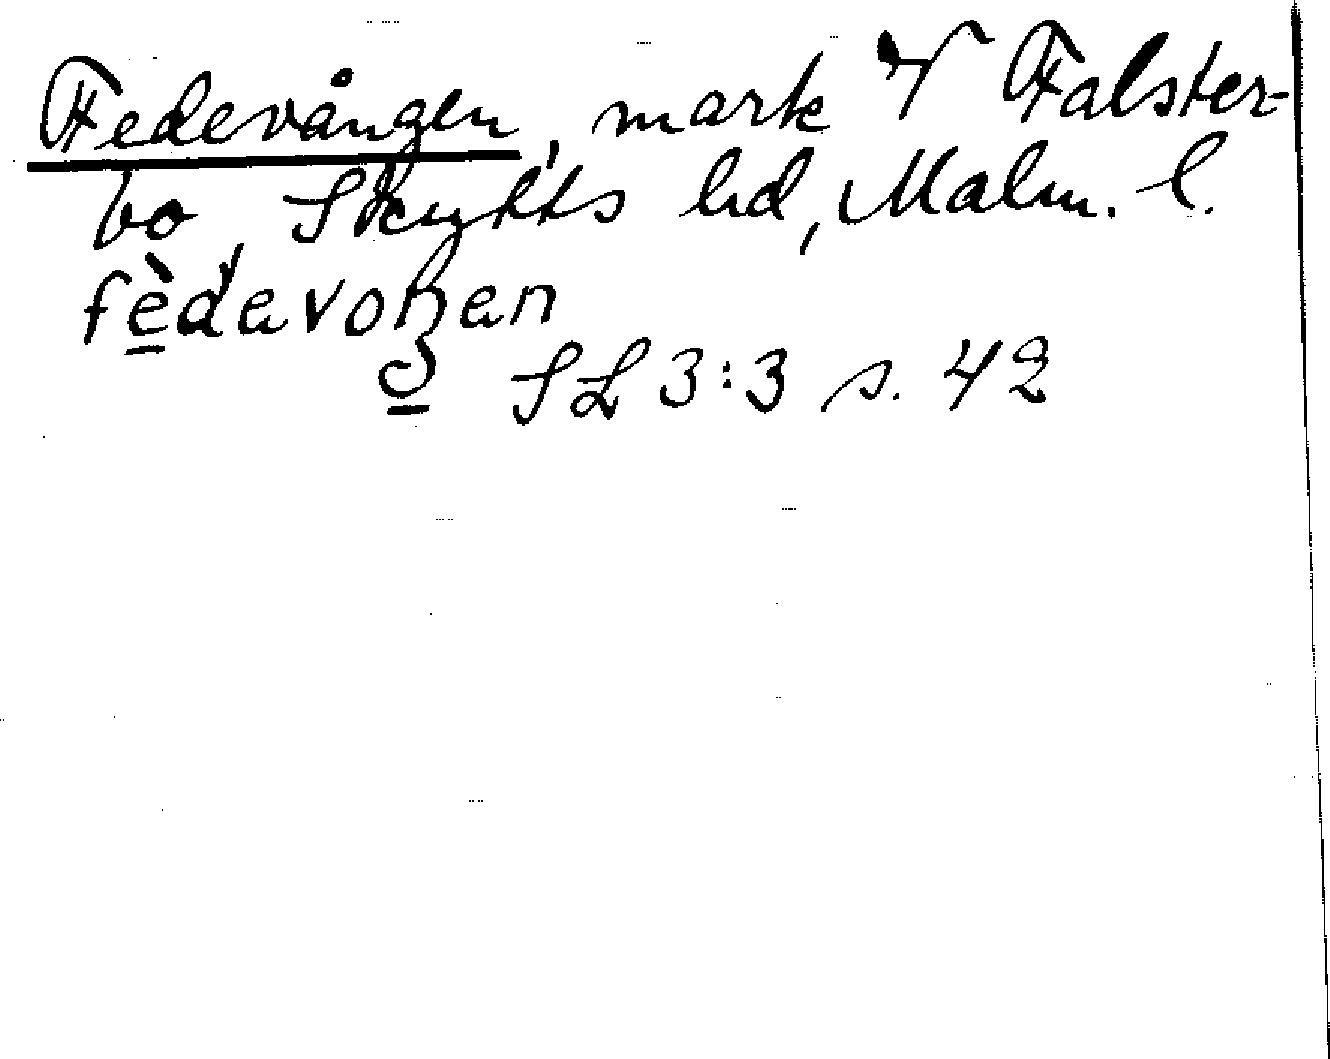 Fedevången, mark i Falster-
bo, Skytts hd, Malm. l.
fèdavoŋen
SL 3:3 s. 42